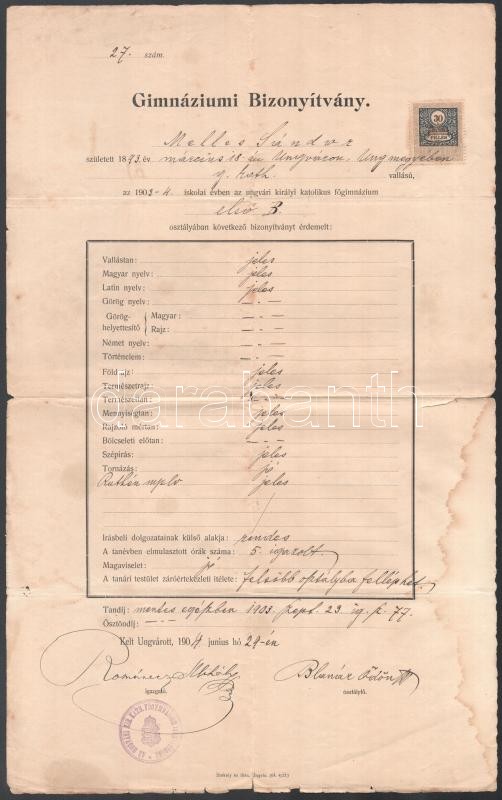 27. szám.
Gimnáziumi Bizonyítvány.
30
FILLÉR
Melles Sándor
született 1893. év március 18-án Ungváron, Ungmegyében
g. kath. vallású,
az 1903-4. iskolai évben az ungvári királyi katolikus főgimnázium
első B.
osztályában következő bizonyítványt érdemelt:
Vallástan: jeles
Magyar nyelv: jeles
Latin nyelv: jeles
Görög nyelv: — - —
Görög-helyettesítő { Magyar: — - —
Rajz: — - —
Német nyelv: — - —
Történelem: — - —
Földrajz: jeles
Természetrajz: jeles
Természettan: — - —
Mennyiségtan: jeles
Rajzoló mértan: jeles
Bölcseleti előtan: — - —
Szépírás: jeles
Tornázás: jó
Ruthén nyelv jeles
Írásbeli dolgozatainak külső alakja: rendes
A tanévben elmulasztott órák száma: 5. igazolt.
Magaviselet: jó
A tanári testület záróértekezleti ítélete: felsőbb osztályba felléphet.
Tandíj: mentes egészben 1903. szept. 23. ig. k. 77.
Ösztöndíj: — - —
Kelt Ungvárott, 1904 junius hó 29-én
Románecz Mihály
igazgató.
Blanár Ödön
osztályfő.
darabanth.com